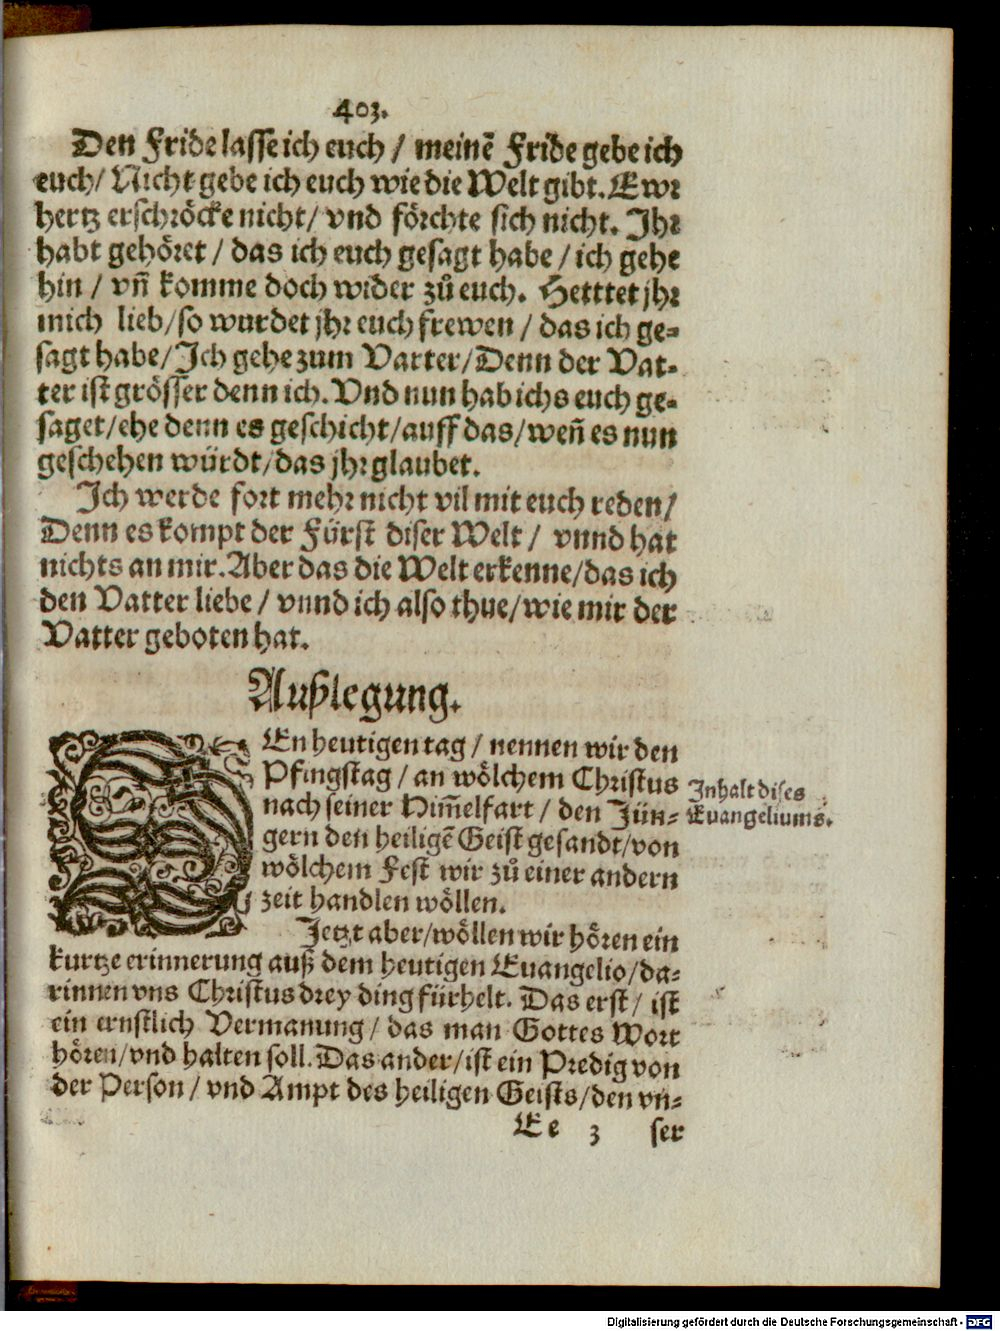 403.
Den Fride lasse ich euch / meinē Fride gebe ich
euch/ Nicht gebe ich euch wie die Welt gibt. Ewr
hertz erschröcke nicht/ vnd förchte sich nicht. Jhr
habt gehöret / das ich euch gesagt habe / ich gehe
hin / vñ komme doch wider zů euch. Hetttet jhr
mich lieb/so wurdet jhr euch frewen / das ich ge-
sagt habe/Jch gehe zum Varter/Denn der Vat-
ter ist grösser denn ich. Vnd nun hab ichs euch ge-
saget/ehe denn es geschicht/auff das/weñ es nun
geschehen würdt/das jhr glaubet.
Jch werde fort mehr nicht vil mit euch reden/
Denn es kompt der Fürst diser Welt / vnnd hat
nichts an mir. Aber das die Welt erkenne/das ich
den Vatter liebe / vnnd ich also thue/wie mir der
Vatter geboten hat.
Außlegung.
DEn heutigen tag / nennen wir den
Pfingstag / an wölchem Christus
nach seiner Him̄elfart / den Jün-
gern den heiligē Geist gesandt/von
wölchem Fest wir zů einer andern
zeit handlen wöllen.
Jnhalt dises
Euangeliums.
Jetzt aber/wöllen wir hören ein
kurtze erinnerung auß dem heutigen Euangelio/da-
rinnen vns Christus drey ding fürhelt. Das erst/ ist
ein ernstlich Vermanung / das man Gottes Wort
hören/vnd halten soll. Das ander/ist ein Predig von
der Person / vnd Ampt des heiligen Geists/den vn-
Ee 3 ser
Digitalisierung gefördert durch die Deutsche Forschungsgemeinschaft - DFG